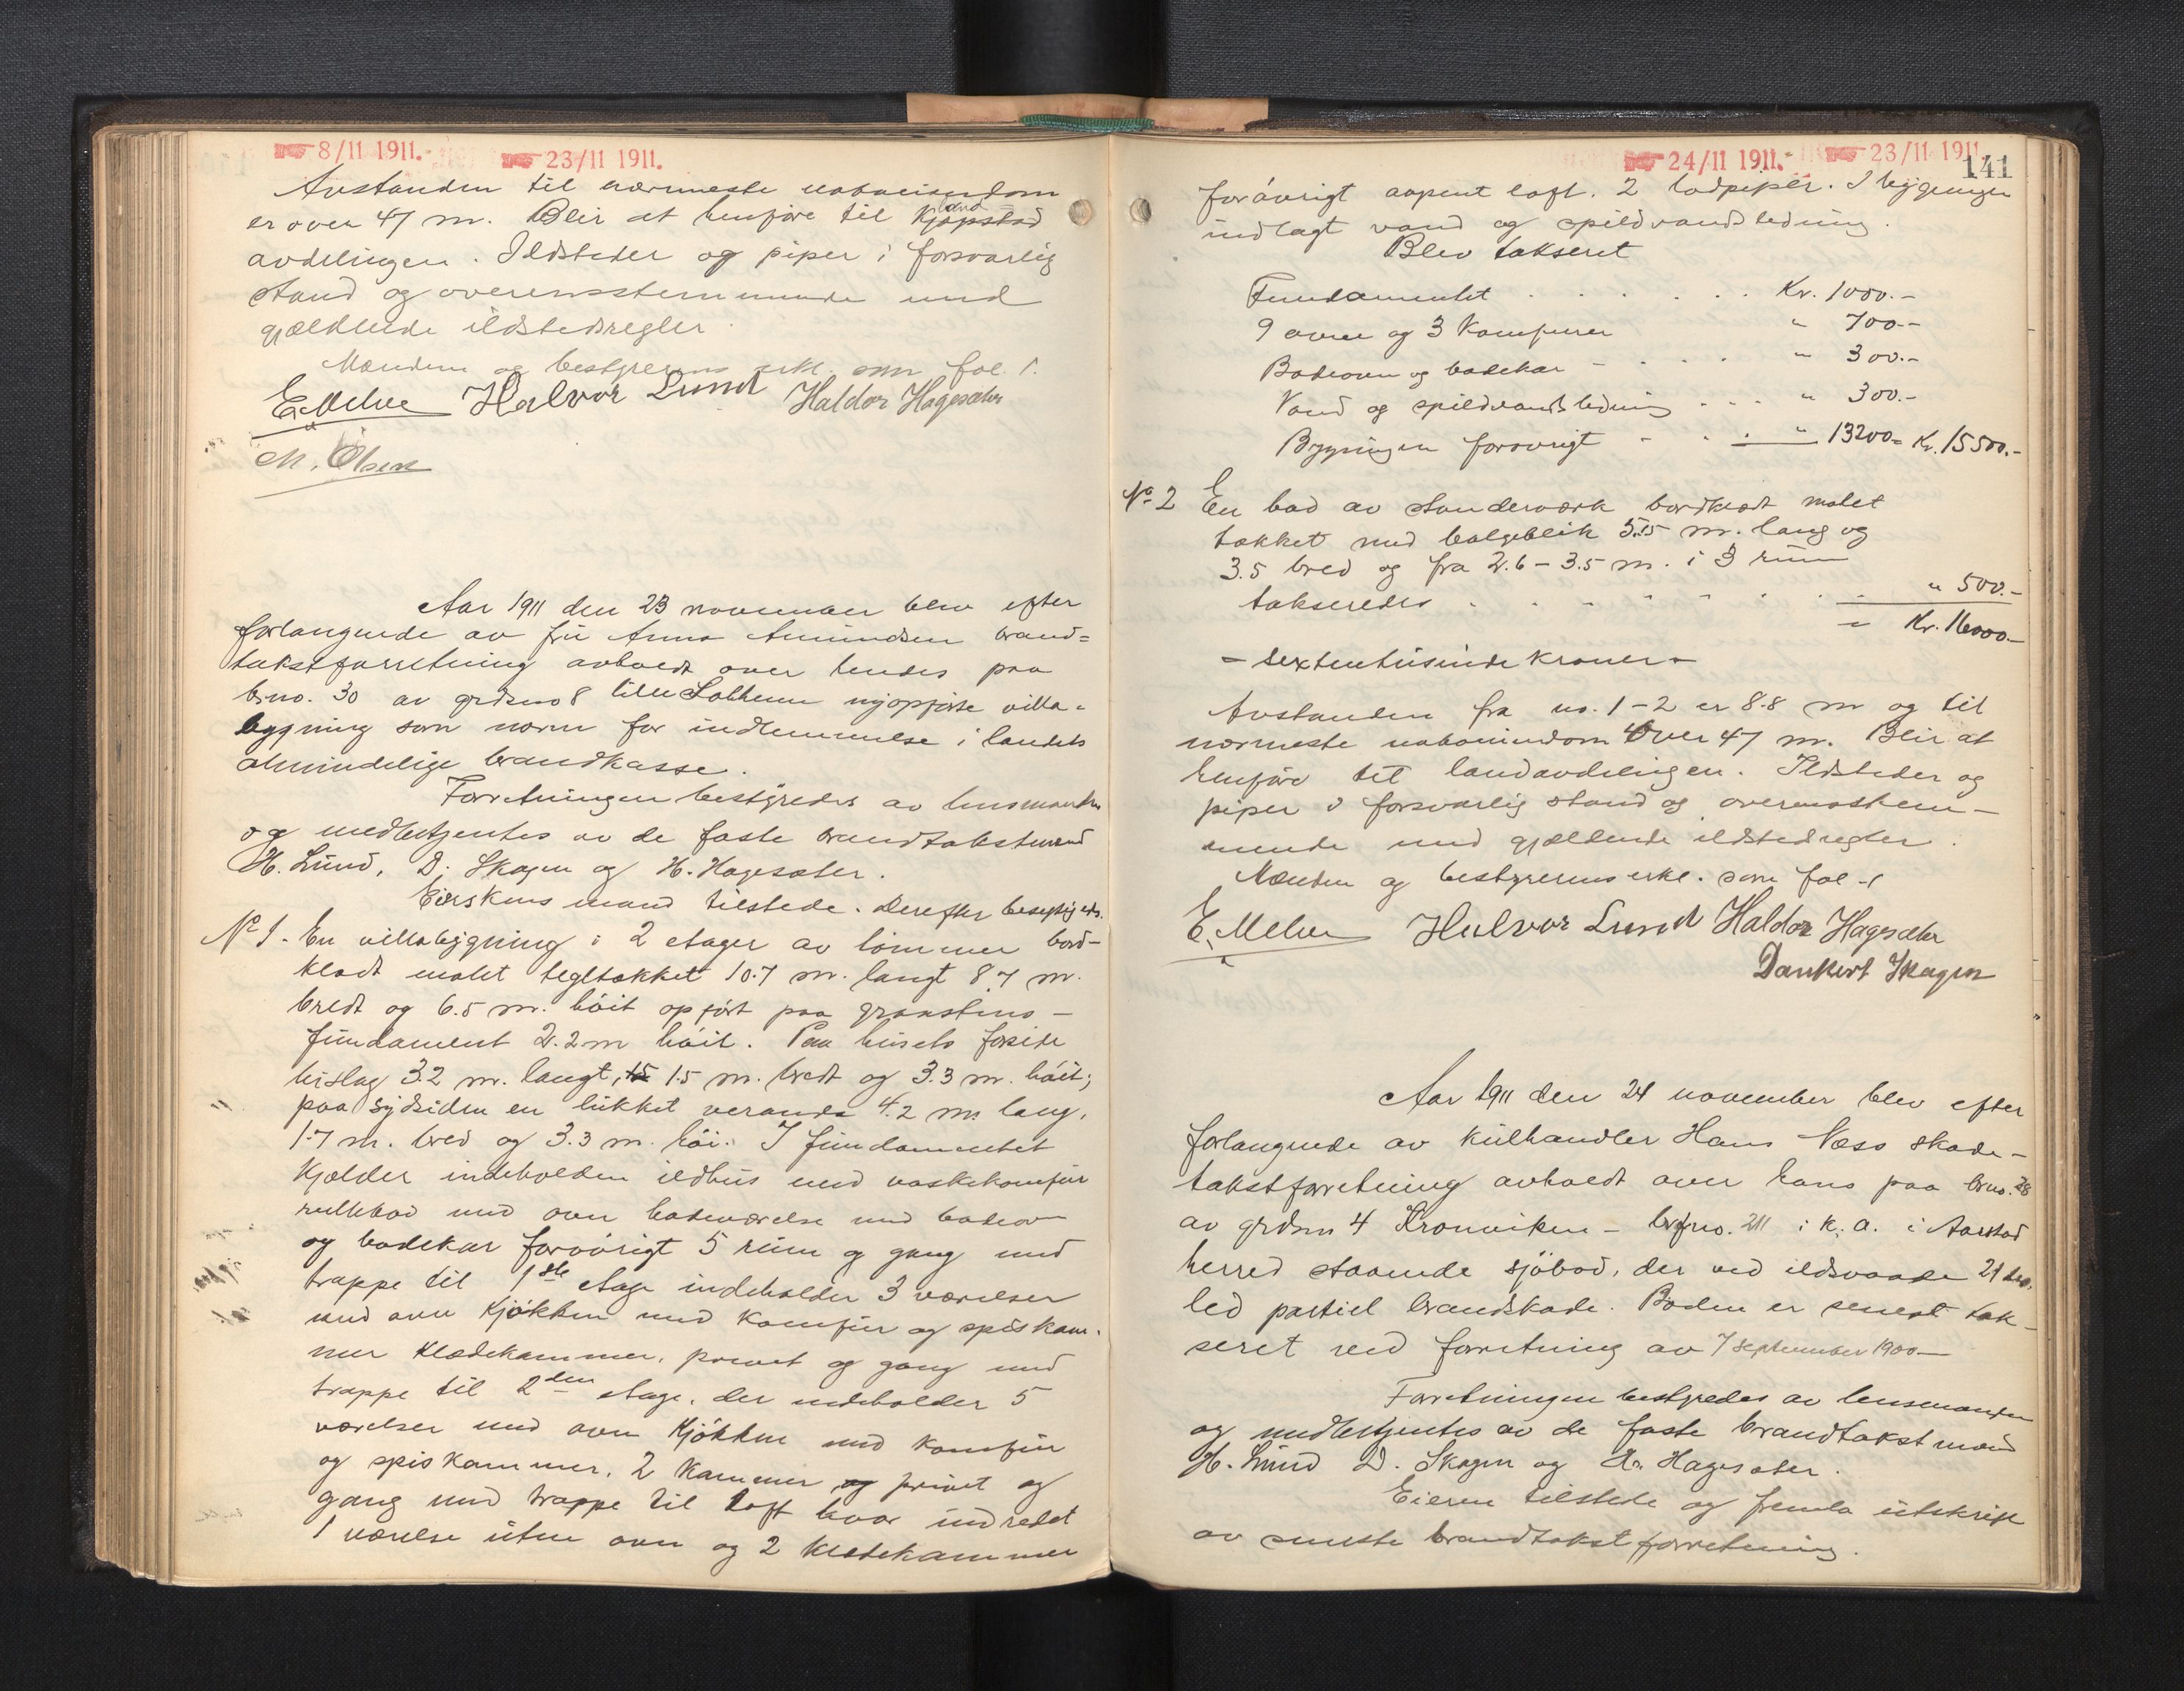 8/11 1911. 23/11 1911.
Avstanden til nærmeste naboeiendom
er over 47 m. Blir at henføre til Kjøpstad land
avdelingen. Ildsteder og piper i forsvarlig
stand og overensstemmende med
gjældende ildstedsregler.
Mændenes og bestyrerens erkl. som fol. 1.
E. Melve Halvor Lund Haldor Hagesæter
M. Olsen
Aar 1911 den 23 november blev efter
forlangende av fru Anna Amundsen brand=
takstforretning avholdt over hendes paa
brno. 30 av grdsno 8 nyopførte villa=
bygning som norm for indlemmelse i landets
almindelige brandkasse.
Forretningen bestyredes av lensmanden
og medbetjentes av de faste brandtakstmænd
H. Lund, D. Skagen og H. Hagesæter.
Eierskens mand tilstede. Derefter besigtigedes.
No 1. En villabygning i 2 etager av tømmer bord-
klædt malet tegltækket 10.7 m. langt 8.7 m.
bredt og 6.5 m. høit opført paa graastens-
fundament 2.2 m høit. Paa husets forside
bislag 3.2 m. langt, 1.5 m. bredt og 3.3 m. høit;
paa sydsiden en lukket veranda 4.2 m. lang,
1.7 m. bred og 3.3 m. høi. I fundamentet
kjælder indeholden ildhus med vaskekomfur
rullebod med ovn badeværelse med badeovn
og badekar forøvrigt 5 rum og gang med
trappe til 1ste etage indeholder 3 værelser
med ovn kjøkken med komfur og spiskam-
mer klædekammer, privet og gang med
trappe til 2den etage, der indeholder 5
værelser med ovn kjøkken med komfur
og spiskammer, 2 kammer og privet og
gang med trappe til loft hvor indredet
1 værelse uten ovn og 2 klædekammer
24/11 1911. 23/11 1911.
141
forøvrigt aapent loft. 2 lodpiper. I bygningen
indlagt vand og spildvandsledning.
Blev takseret
Fundamentet . . . . . . Kr. 1000.-
9 ovner og 3 komfurer " 700.-
Badeovn og badekar - . . . " 300.-
Vand og spildvandsledning . . . " 300.-
Bygningen forøvrigt - . . " 13200= Kr. 15500.-
No 2 En bod av stenderværk bordklædt malet
tækket med bølgeblik 5.15 m. lang og
3.5 bred og fra 2.6 - 3.5 m. i 3 rum
takseredes . . . . . . . " 500.-
Kr. 16000.-
- sextentusinde kroner -
Avstanden fra no. 1-2 er 8.8 m og til
nærmeste naboeiendom over 47 m. Blir at
henføre til landavdelingen. Ildsteder og
piper i forsvarlig stand og overensstem-
mende med gjældende ildstedregler.
Mænden og bestyrerens erkl. som fol - 1
E. Melve Halvor Lund Haldor Hagesæter
Dankert Skagen
Aar 1911 den 24 november blev efter
forlangende av kulhandler Hans Næss skade-
takstforretning avholdt over hans paa brno. 28
av grdsn 4 Kronviken - brfno. 211 i k. a. i Aarstad
herred staaende sjøbod, der ved ildsvaade 21 ds.
led partiel brandskade. Boden er senest tak-
seret ved forretning av 7 september 1900-
Forretningen bestyredes av lensmanden
og medbetjentes av de faste brandtakstmænd
H. Lund D. Skagen og H. Hagesæter.
Eieren tilstede og fremla utskrift
av seneste brandtakstforretning.